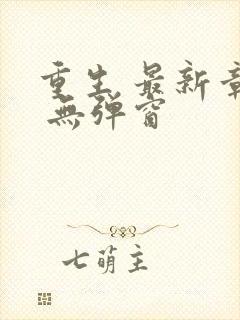 重生 最新章
無弹窗
七萌主